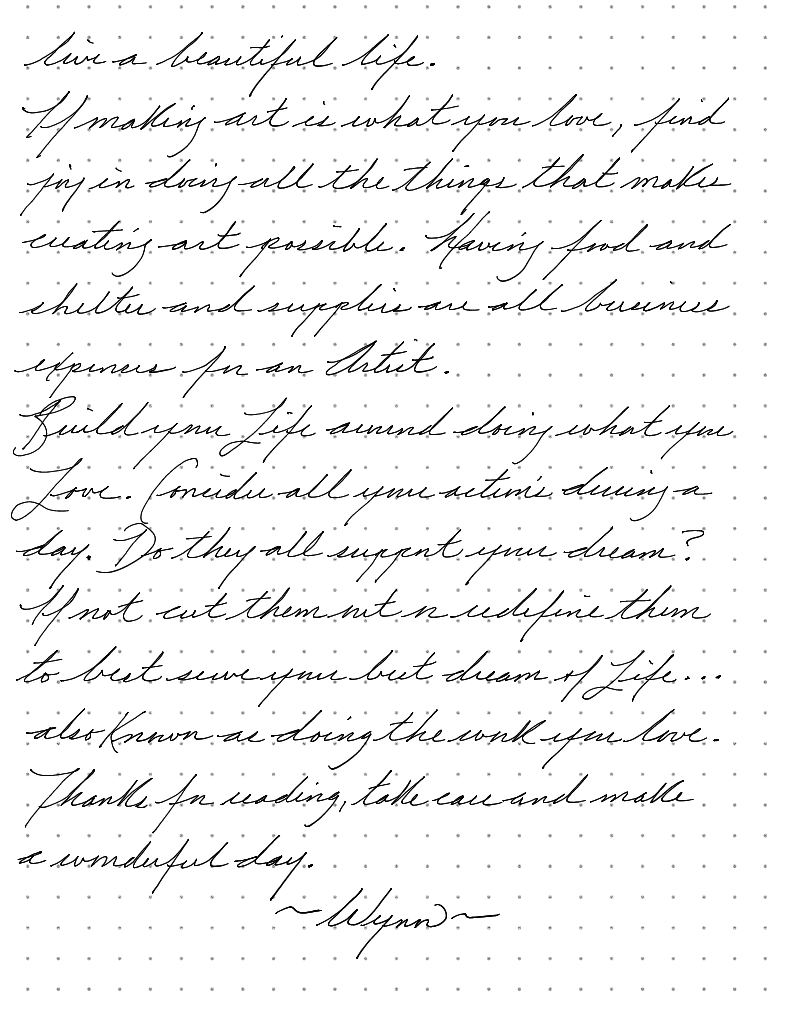 live a beautiful life.
If making art is what you love, find
joy in doing all the things that makes
creating art possible. Having food and
shelter and supplies are all business
expenses for an Artist.
Build your Life around doing what you
Love. Consider all your actions during a
day. Do they all support your dream?
If not cut them out or redefine them
to best serve your best dream of Life...
also Known as doing the work you love.
Thanks for reading, take care and make
a wonderful day.
~Wynn~